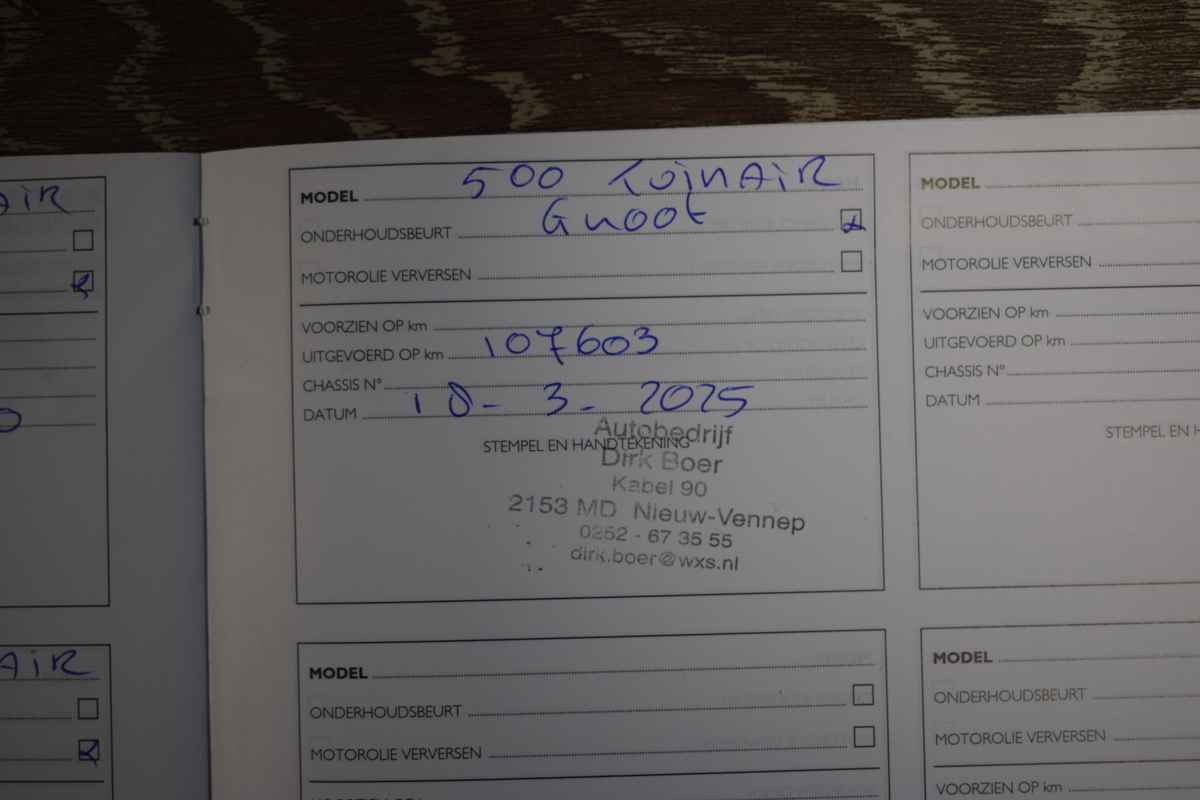 AiR
MODEL 500 TwinAiR
ONDERHOUDSBEURT Groot
MOTOROLIE VERVERSEN
VOORZIEN OP km
UITGEVOERD OP km 107603
CHASSIS N°
DATUM 18-3-2025
STEMPEL EN HANDTEKENING
Autobedrijf
Dirk Boer
Kabel 90
2153 MD Nieuw-Vennep
0252 - 67 35 55
dirk.boer@wxs.nl
MODEL
ONDERHOUDSBEURT
MOTOROLIE VERVERSEN
VOORZIEN OP km
UITGEVOERD OP km
CHASSIS N°
DATUM
STEMPEL EN H
AiR
MODEL
ONDERHOUDSBEURT
MOTOROLIE VERVERSEN
MODEL
ONDERHOUDSBEURT
MOTOROLIE VERVERSEN
VOORZIEN OP km